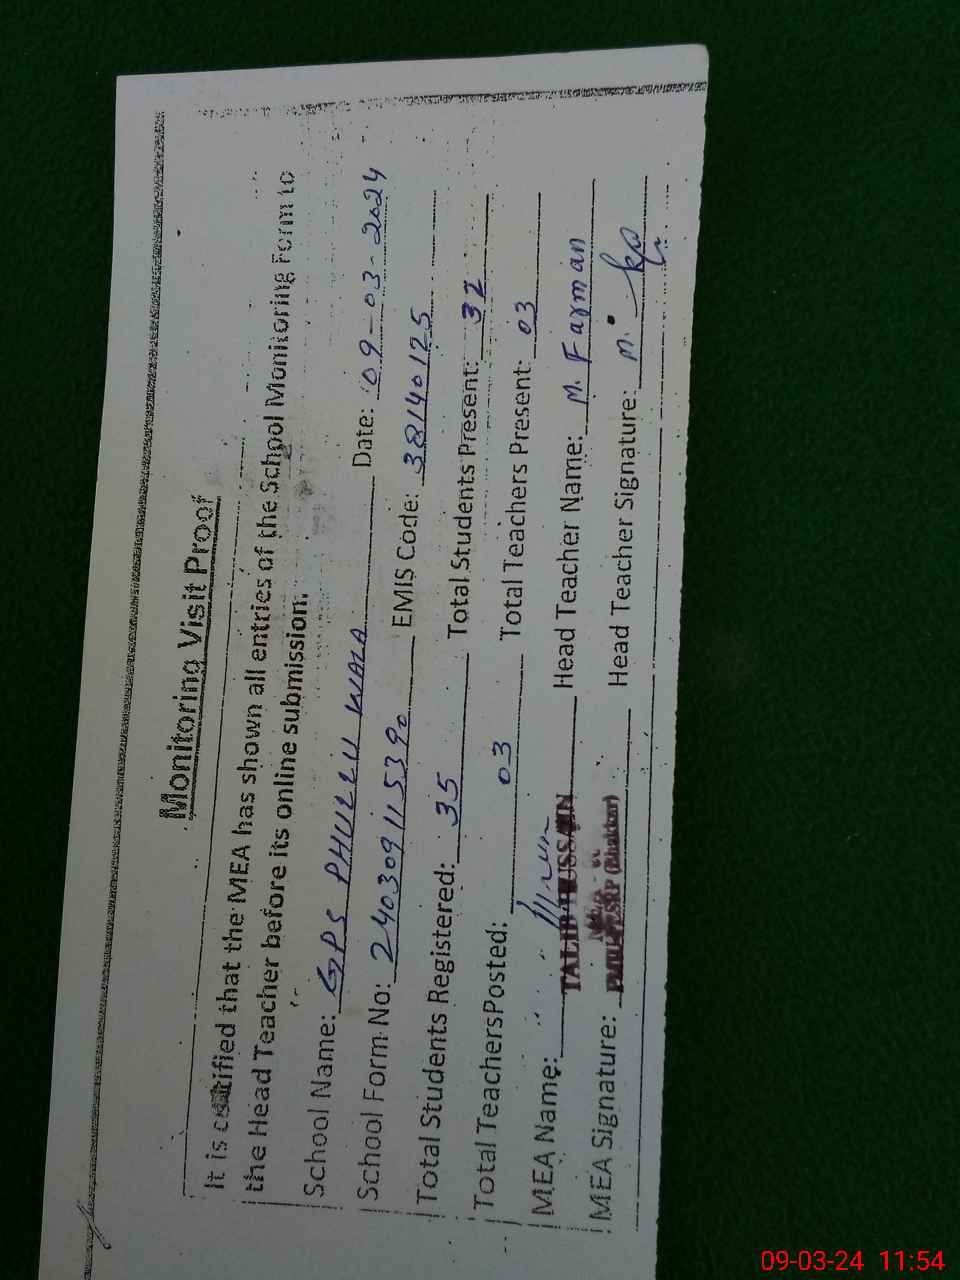 Monitoring Visit Proof
It is certified that the MEA has shown all entries of the School Monitoring Form to
the Head Teacher before its online submission.
School Name: GPS PHULLU WALA Date: 09-03-2024
School Form No: 240309115390 EMIS Code: 38140125
Total Students Registered: 35 Total Students Present: 32
Total TeachersPosted: 03 Total Teachers Present: 03
MEA Name: TALIB HUSSAIN Head Teacher Name: M. Farman
MEA Signature: (Bhakkar) Head Teacher Signature: M.
09-03-24 11:54